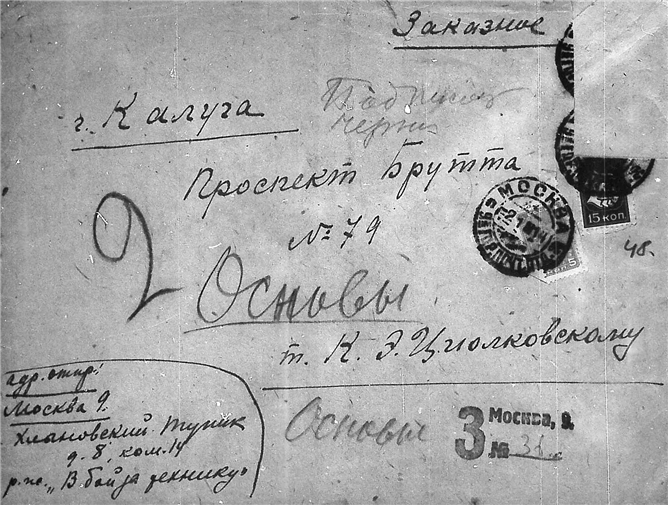 Заказное
г. Калуга
черни
Проспект Брутта
№ 79
2
Основы
т. К. Э. Циолковскому
МОСКВА
15 КОП.
48.
адр. отпр.:
Москва 9.
Хлановский тупик
д. 8, ком. 14
р. же. „В бой за технику"
Основы
З Москва, 9.
№ 31